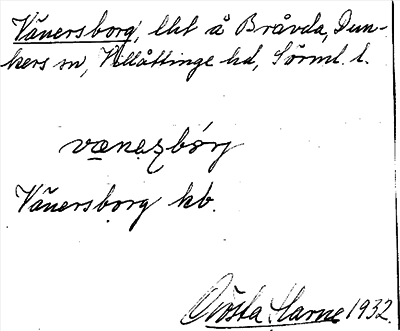 Vänersborg, lht å Bråvda, Dun-
kers sn, Villåttinge hd, Sörml. l.
vænəʂbórj
Vänersborg kb.
Gösta Harne 1932.